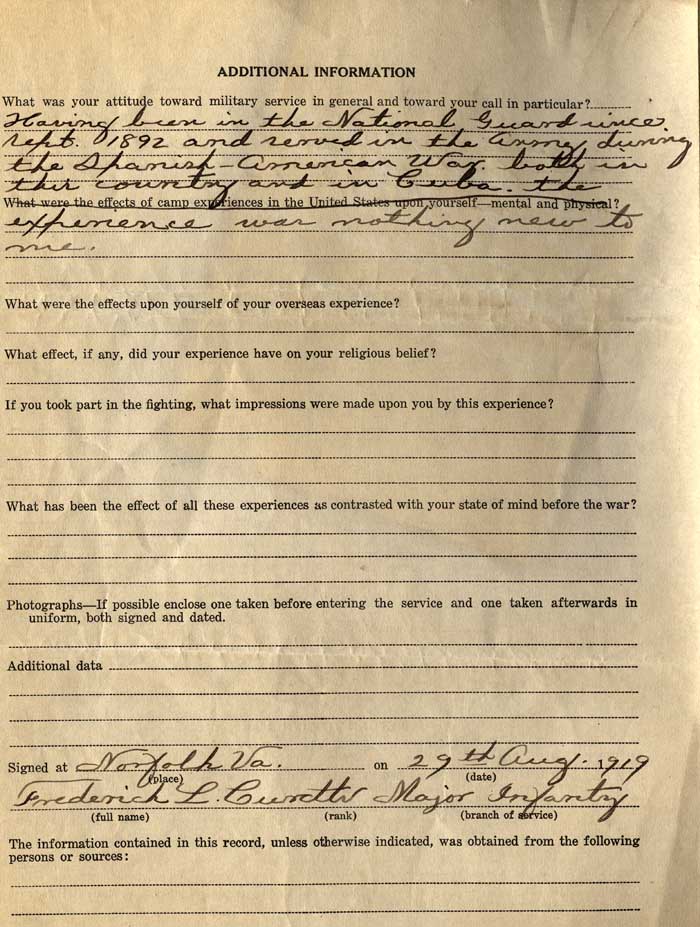 ADDITIONAL INFORMATION
What was your attitude toward military service in general and toward your call in particular?
Having been in the National Guard since
Sept. 1892 and served in the Army during
the Spanish-American War. both in
this country and in Cuba. the
What were the effects of camp experiences in the United States upon yourself—mental and physical?
experience was nothing new to
me.
What were the effects upon yourself of your overseas experience?
What effect, if any, did your experience have on your religious belief?
If you took part in the fighting, what impressions were made upon you by this experience?
What has been the effect of all these experiences as contrasted with your state of mind before the war?
Photographs—If possible enclose one taken before entering the service and one taken afterwards in
uniform, both signed and dated.
Additional data
Signed at Norfolk Va. on 29th Aug. 1919
(place) (date)
Frederick L. Major Infantry
(full name) (rank) (branch of service)
The information contained in this record, unless otherwise indicated, was obtained from the following
persons or sources: